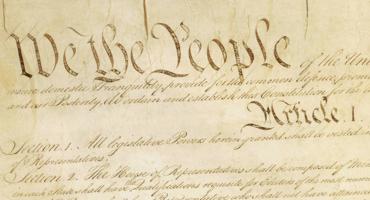 We the People of the Unit
insure domestic Tranquility, provide for the common defence, promo
and our Posterity, do ordain and establish this Constitution for the U
Article I.
Section 1. All legislative Powers herein granted shall be vested in
of Representatives.
Section 2. The House of Representatives shall be composed of Mem
in each State shall have Qualifications requisite for Electors of the most numer
Representative who shall not have attained